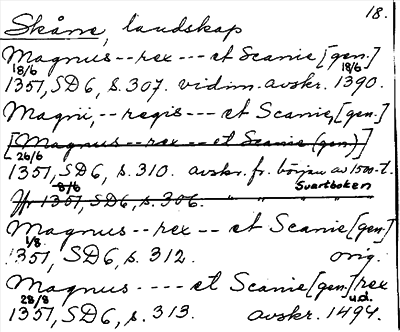 18.
Skåne, landskap
Magnus--rex---et Scanie [gen.]
18/6 18/6
1351, SD6, s.307. vidim. avskr. 1390.
Magni,--regis---et Scanie, [gen.]
[Magnus--rex---et Scanie (gen)]
26/6
1351, SD6, s.310. avskr. fr. början av 1500-t.
8/6 Svartboken
1351, SD6, s.306. " " " "
Magnus--rex--et Scanie [gen]
1/8
1351, SD6, s.312. orig.
Magnus----et Scanie [gen] rex
28/8 u.d.
1351, SD6, s.313. avskr. 1494.